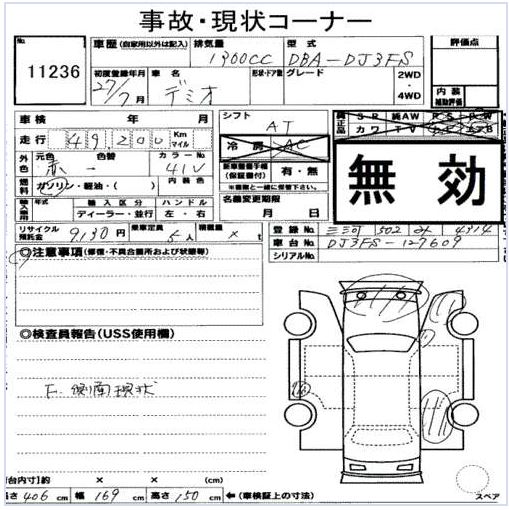 事故・現状コーナー
No. 11236
車歴 (自家用以外は記入) 排気量 1300CC 型式 DBA-DJ3FS
評価点
初度登録年月 27/7月 車名 デミオ 形状・ドア数 グレード 2WD・4WD
内装補助評価
車検 年 月
シフト AT
純正品 SR 純AW PS PW
カワ TV ナビ エアB
走行 49,200 Km マイル
冷房 AC
外色 元色 赤 色替 カラーNo. 41V
新車整備手帳(保証書付) 有・無
※車歴と一緒に保管下さい。
無効
燃料 ガソリン・軽油・( ) 内装色
名義変更期限 月 日
輸入車用 年式 輸入区分 ハンドル
ディーラー・並行 左・右
リサイクル預託金 9,130円 乗車定員 5人 積載量 × t
登録No. 三河 502 み 4314
車台No. DJ3FS-127609
シリアルNo.
◎注意事項(修復・不具合箇所および状態等)
◎検査員報告(USS使用欄)
F、側面現状
(荷台内寸)約 × × cm
長さ 406 cm 幅 169 cm 高さ 150 cm ←(車検証上の寸法)
スペア